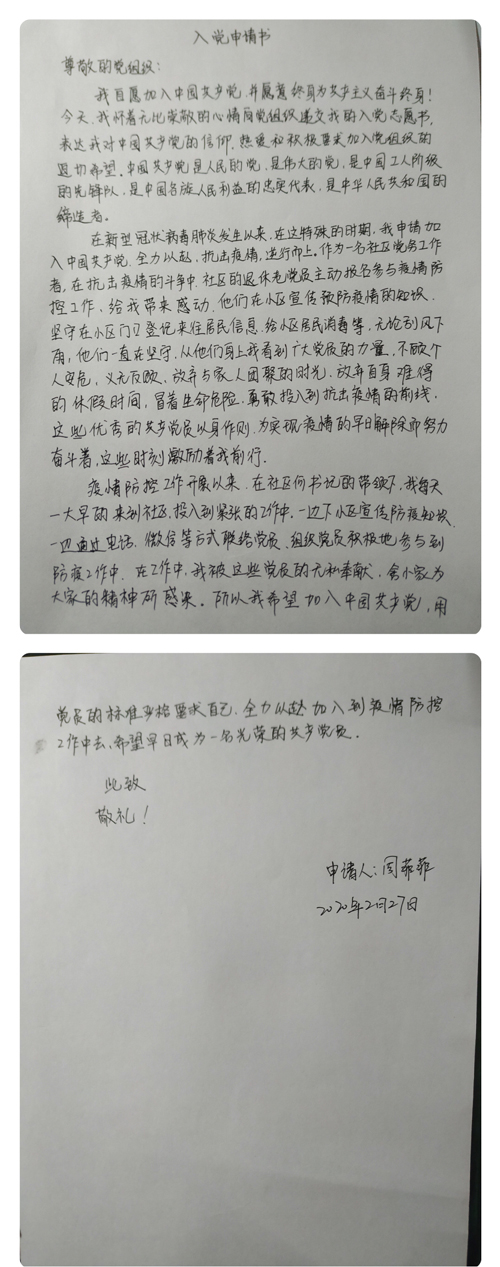 入党申请书
尊敬的党组织：
我自愿加入中国共产党，并愿意终身为共产主义奋斗终身！
今天，我怀着无比崇敬的心情向党组织递交我的入党志愿书，
表达我对中国共产党的信仰，热爱和积极要求加入党组织的
迫切希望。中国共产党是人民的党，是伟大的党，是中国工人阶级
的先锋队，是中国各族人民利益的忠实代表，是中华人民共和国的
缔造者。
在新型冠状病毒肺炎发生以来，在这特殊的时期，我申请加
入中国共产党，全力以赴，抗击疫情，逆行而上。作为一名社区党务工作
者，在抗击疫情的斗争中，社区的退休老党员主动报名参与疫情防
控工作，给我带来感动，他们在小区宣传预防疫情的知识，
坚守在小区门口登记来往居民信息，给小区居民消毒等，无论刮风下
雨，他们一直在坚守，从他们身上我看到广大党员的力量，不顾个
人安危，义无反顾，放弃与家人团聚的时光，放弃自身难得
的休假时间，冒着生命危险，勇敢投入到抗击疫情的前线，
这些优秀的共产党员以身作则，为实现疫情的早日解除而努力
奋斗着，这些时刻激励着我前行。
疫情防控工作开展以来，在社区何书记的带领下，我每天
一大早的来到社区，投入到紧张的工作中，一边下小区宣传防疫知识，
一边通过电话、微信等方式联络党员、组织党员积极地参与到
防疫工作中，在工作中，我被这些党员的无私奉献，舍小家为
大家的精神所感染。所以我希望加入中国共产党，用
党员的标准严格要求自己，全力以赴加入到疫情防控
工作中去，希望早日成为一名光荣的共产党员。
此致
敬礼！
申请人：闫菲菲
2020年2月27日